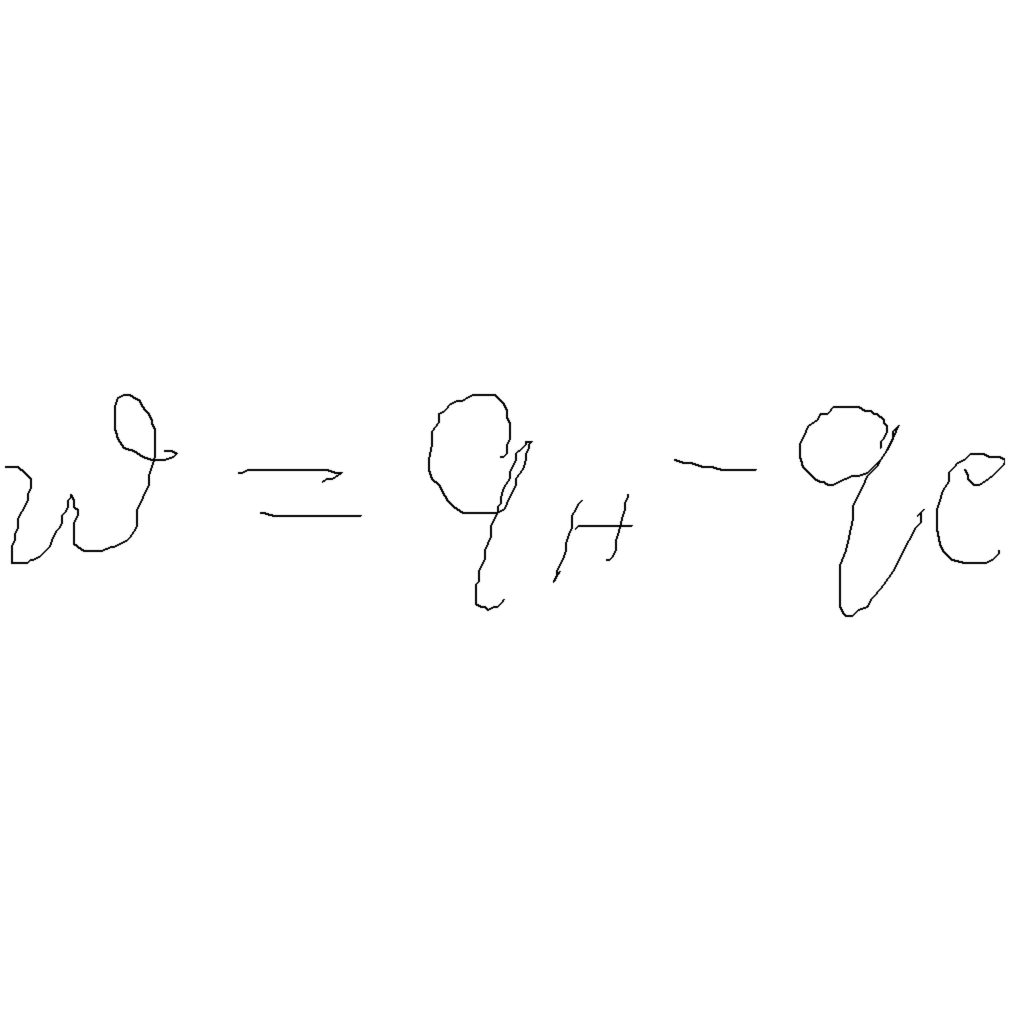 w = q_H - q_C